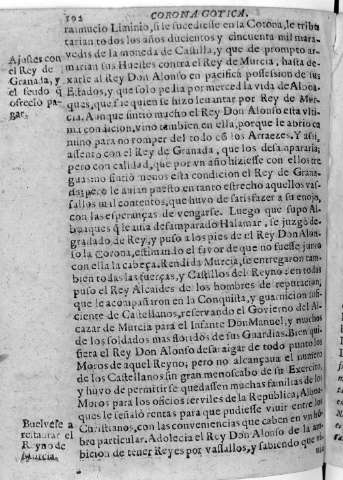 192
CORONA GOTICA.
raimucio Lianinio, si le sucediesse en la Corona, le tribu
tarian todos los años ducientos y cincuenta mil mara-
vedis de la moneda de Castilla, y que de prompto ar-
Ajustes con
el Rey de
Granada, y
el feudo q̃
ofreciò pa-
gar.
marian sus Huestes contra el Rey de Murcia, hasta de-
xarle al Rey Don Alonso en pacifica possession de sus
Estados, y que solo pedia por merced la vida de Alboa-
ques, que se quien se hizo levantar por Rey de Mur-
cia. Aunque sintiò mucho el Rey Don Alonso esta vlti-
ma condicion, vino tambien en ella, porque le abrio ca
mino para no romper del todo cõ los Arraezes. Y assi,
assento con el Rey de Granada, que los desampararia;
pero con calidad, que por vn año hiziesse con ellos tre
guas no sintiò menos esta condicion el Rey de Grana-
da; pero le auian puesto en tanto estrecho aquellos vas-
sallos mal contentos, que huvo de satisfazer a su enojo,
con las esperanças de vengarse. Luego que supo Al-
boaques q̃ le auia desamparado Halamar, se juzgò de-
gradado de Rey, y puso a los pies de el Rey Don Alon-
so la Corona, estimando el favor de que no fuesse junto
con ella la cabeça. Rendida Murcia, se entregaron tam-
bien todas las fuerças, y Castillos del Reyno: en todas
puso el Rey Alcaides de los hombres de reputacion,
que le acompañaron en la Conquista, y guarnicion sufi-
ciente de Castellanos, reservando el Govierno del Al-
cazar de Murcia para el Infante Don Manuel, y muchos
de los soldados mas floridos de sus Guardias. Bien qui-
siera el Rey Don Alonso desarraigar de todo punto los
Moros de aquel Reyno; pero no alcançaua el numero
de los Castellanos sin gran menoscabo de su Exercito,
y huvo de permitir se quedassen muchas familias de los
Moros para los oficios serviles de la Republica, Alboa-
ques le señalò rentas para que pudiesse viuir entre los
Buelvese a
restaurar el
Reyno de
Murcia.
Christianos, con las conveniencias que caben en vn hõ-
bre particular. Adolecia el Rey Don Alonso de la am-
bicion de tener Reyes por vassallos, y sabiendo que